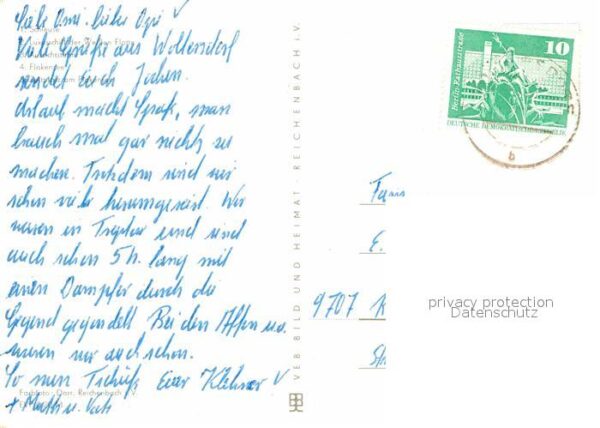 Liebe Omi, lieber Opi
Viele Grüße aus Woltersdorf
sendet euch Jochen.
Urlaub macht Spaß, man
brauch mal gar nichts zu
machen. Trotzdem sind wir
schon viel herumgereist. Wir
waren in Treptow und sind
auch schon 5 h. lang mit
einen Dampfer durch die
Gegend gegondelt. Bei den Affen u.a.
waren wir auch schon.
So nun Tschüß Euer
+ Mutti u. Vati
1. Schleuse
4. Flakensee
Farbfoto: Darr, Reichenbach i. V.
VEB BILD UND HEIMAT REICHENBACH I.V.
10
Berlin-Rathausstraße
DEUTSCHE DEMOKRATISCHE REPUBLIK
b
Fam
E.
9707 K
privacy protection
Datenschutz